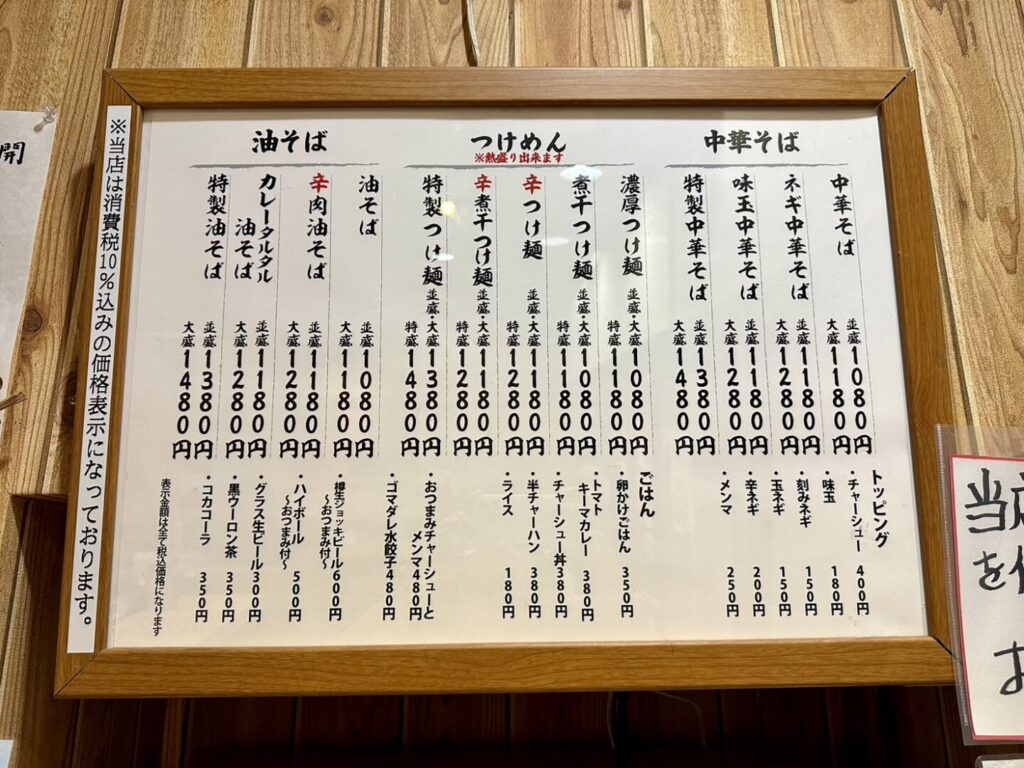 中華そば
中華そば
並盛1080円
大盛1180円
ネギ中華そば
並盛1180円
大盛1280円
味玉中華そば
並盛1180円
大盛1280円
特製中華そば
並盛1380円
大盛1480円
つけめん
※熱盛り出来ます
濃厚つけ麺
並盛・大盛1080円
特盛1180円
煮干つけ麺
並盛・大盛1080円
特盛1180円
辛つけ麺
並盛・大盛1180円
特盛1280円
辛煮干つけ麺
並盛・大盛1180円
特盛1280円
特製つけ麺
並盛・大盛1380円
特盛1480円
油そば
油そば
並盛1080円
大盛1180円
辛肉油そば
並盛1180円
大盛1280円
カレータルタル
油そば
並盛1180円
大盛1280円
特製油そば
並盛1380円
大盛1480円
トッピング
・チャーシュー 400円
・味玉 180円
・刻みネギ 150円
・玉ネギ 150円
・辛ネギ 200円
・メンマ 250円
ごはん
・卵かけごはん 350円
・トマト
キーマカレー 380円
・チャーシュー丼 380円
・半チャーハン 380円
・ライス 180円
・おつまみチャーシューと
メンマ 480円
・ゴマダレ水餃子 480円
・樽生ジョッキビール 600円
〜おつまみ付〜
・ハイボール 500円
〜おつまみ付〜
・グラス生ビール 300円
・黒ウーロン茶 350円
・コカコーラ 350円
表示金額は全て税込価格になります
※当店は消費税10%込みの価格表示になっております。
開
当店
を
お